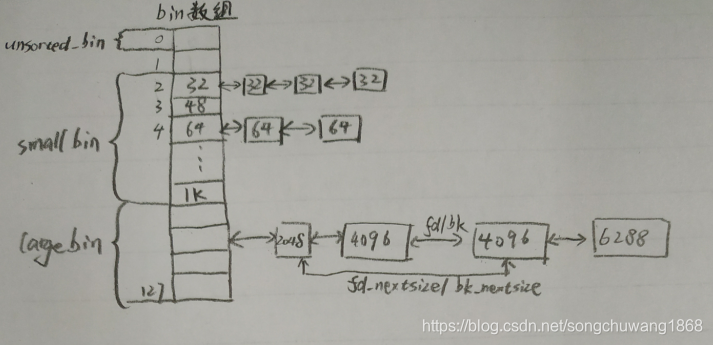 bin数组
unsorted_bin 0
1
2 32 32 32 32
3 48
4 64 64 64
small bin
1K
large bin
2048 4096 fd/bk 4096 6288
fd_nextsize/bk_nextsize
127
https://blog.csdn.net/songchuwang1868